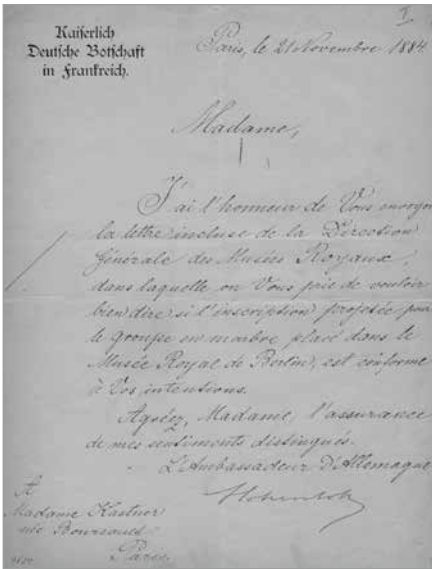 I
Kaiserlich
Deutsche Botschaft
in Frankreich.
Paris, le 21 Novembre 1884.
Madame,
J'ai l'honneur de Vous envoyer
la lettre incluse de la Direction
Générale des Musées Royaux,
dans laquelle on Vous prie de vouloir
bien dire, si l'inscription projetée pour
le groupe en marbre placé dans le
Musée Royal de Berlin, est conforme
à Vos intentions.
Agréez, Madame, l'assurance
de mes sentiments distingués.
L'Ambassadeur d'Allemagne
Hohenlohe
A
Madame Kastner
née Boursault
Paris.